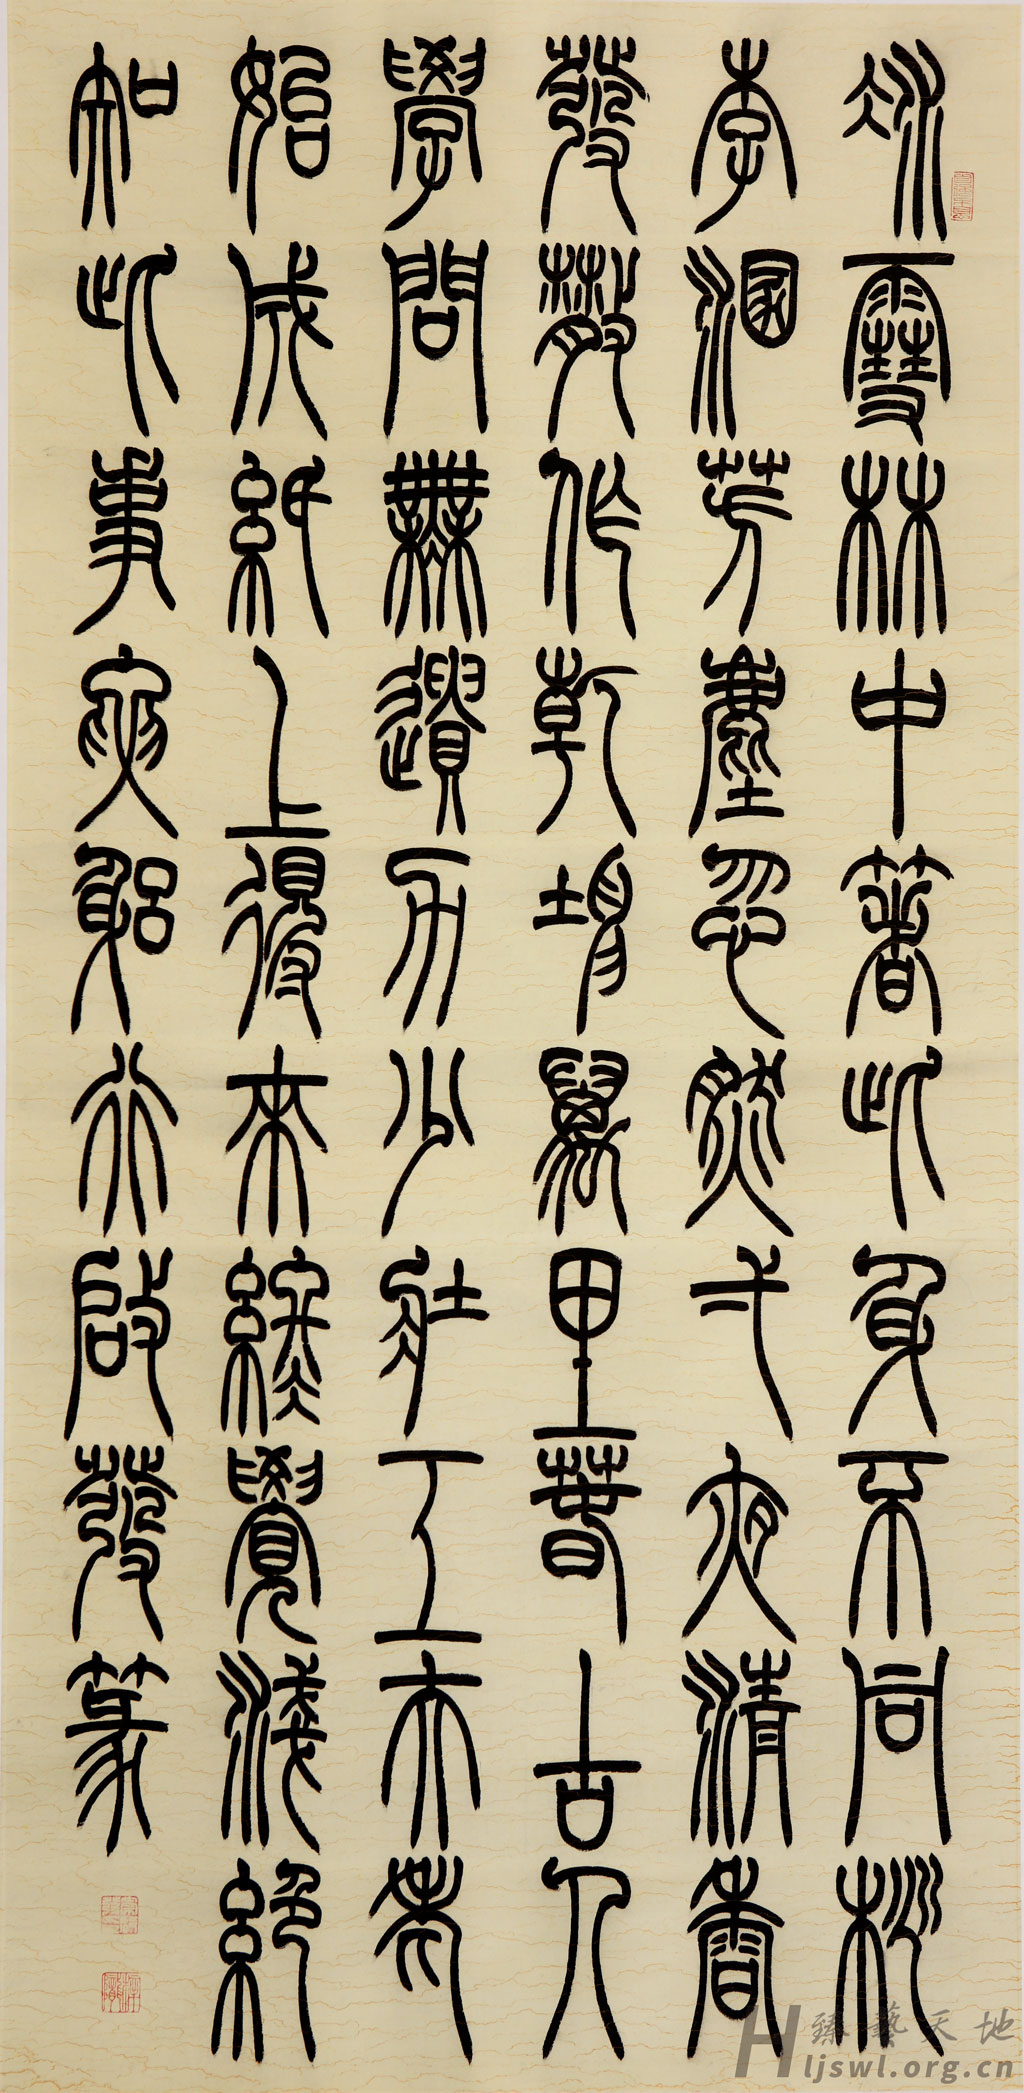 冰雪林中著此身不同桃
李混芳塵忽然一夜清香
發散作乾坤萬里春古人
學問無遺力少壯工夫老
始成紙上得來終覺淺絕
知此事要躬行啟發篆
臻藝天地
Hljswl.org.cn